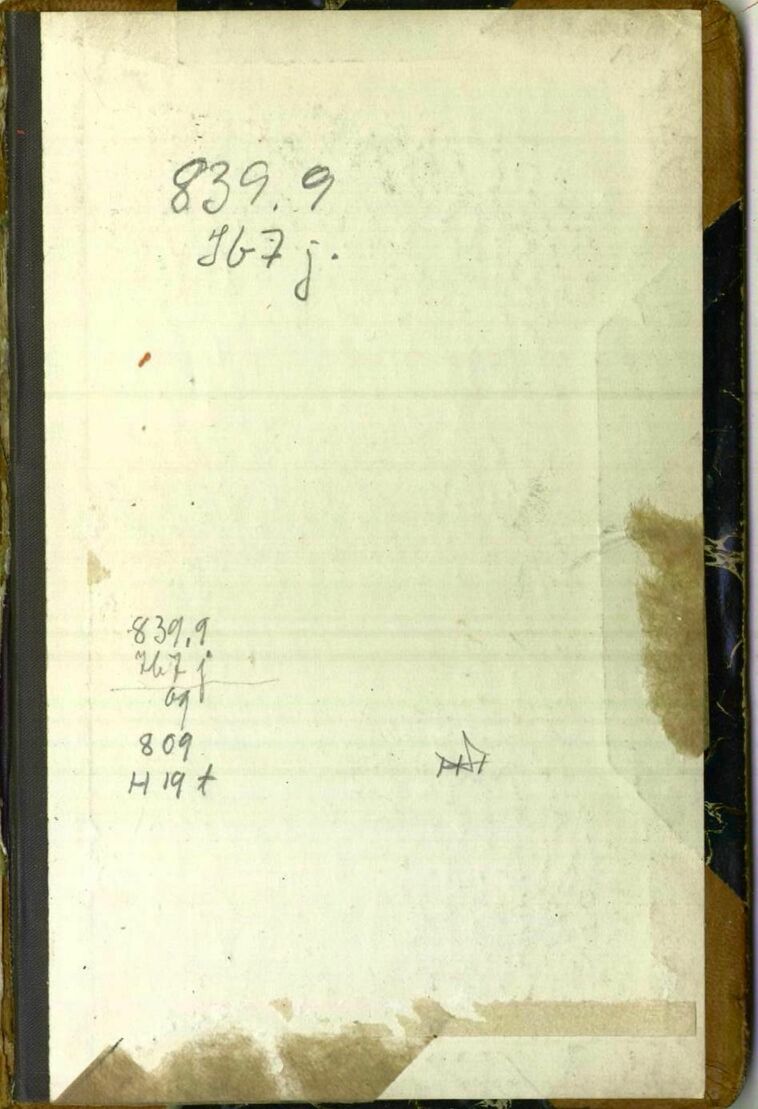 839.9
Ib7j.
839.9
Ib7j
69
809
H 19 t